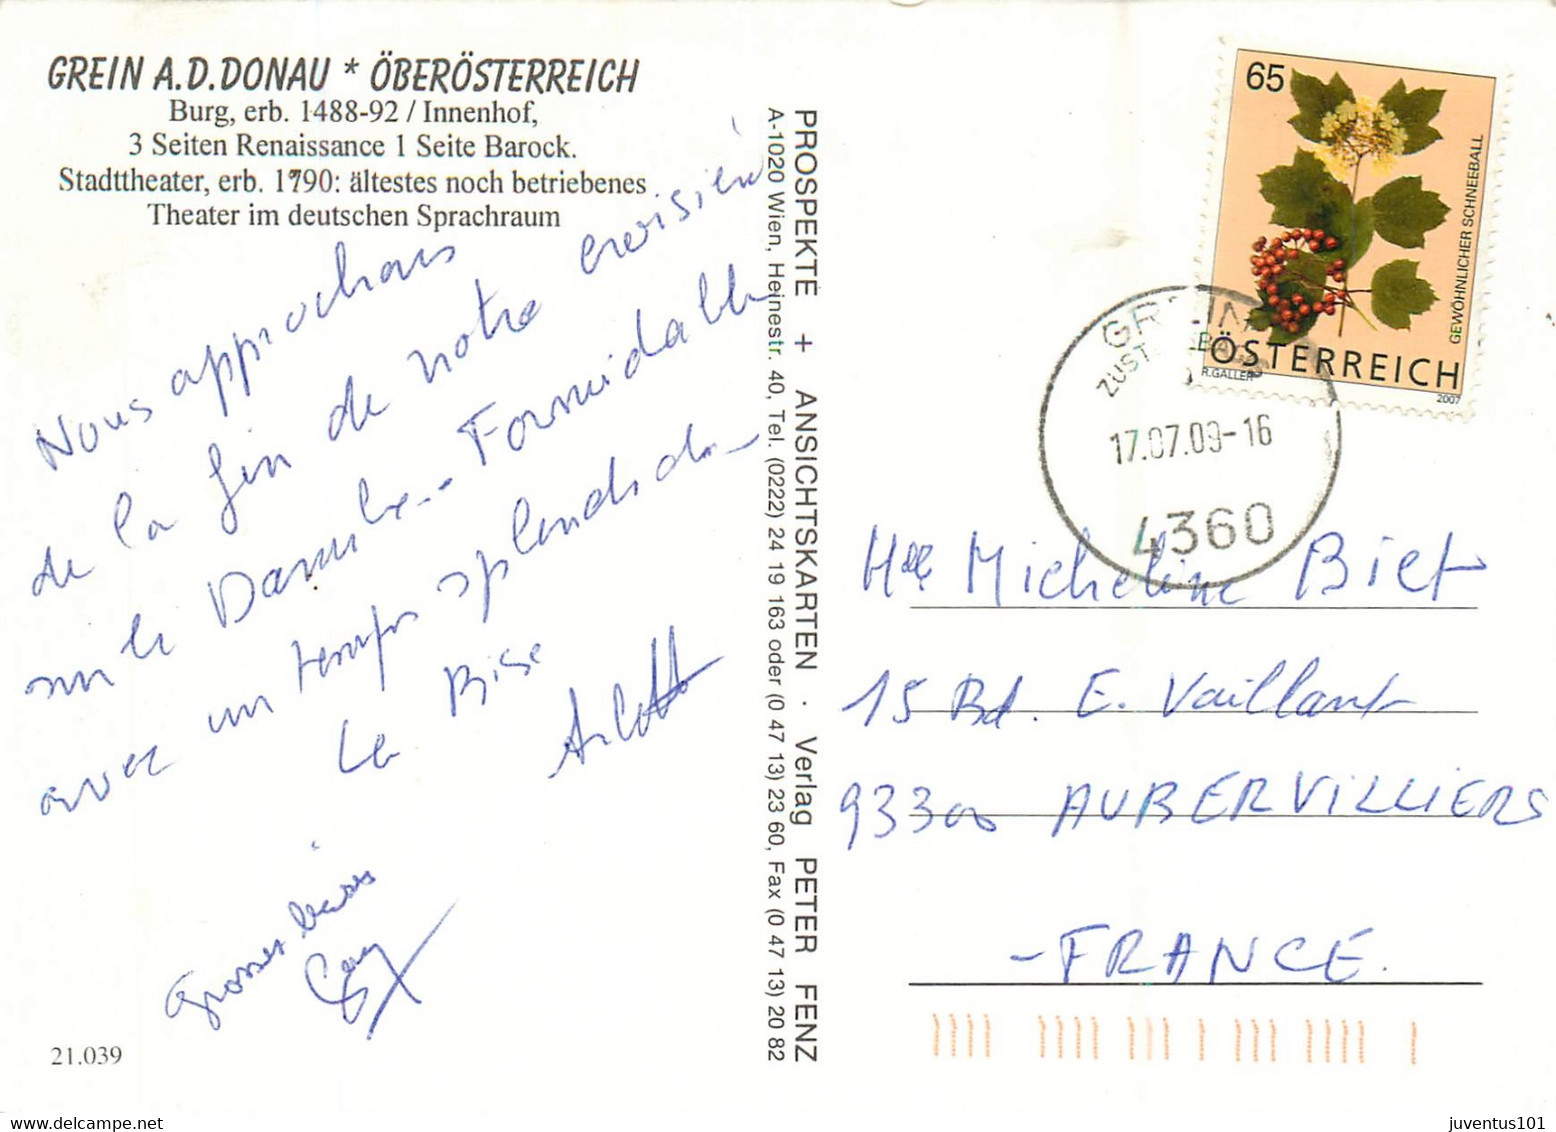 GREIN A.D.DONAU * ÖBERÖSTERREICH
Burg, erb. 1488-92 / Innenhof,
3 Seiten Renaissance 1 Seite Barock.
Stadttheater, erb. 1790: ältestes noch betriebenes
Theater im deutschen Sprachraum
Nous approchons
de la fin de notre croisière
sur le Danube.. Formidable
avec un temps splendide
La Bise
Grosses bises
21.039
PROSPEKTE + ANSICHTSKARTEN · Verlag PETER FENZ
A-1020 Wien, Heinestr. 40, Tel. (0222) 24 19 163 oder (0 47 13) 23 60, Fax (0 47 13) 20 82
65
GEWÖHNLICHER SCHNEEBALL
ÖSTERREICH
R.GALLER
2007
GREIN
17.07.09-16
4360
Mlle Micheline Biet
15 Bd. E. Vaillant
93300 AUBERVILLIERS
-FRANCE.
juventus101